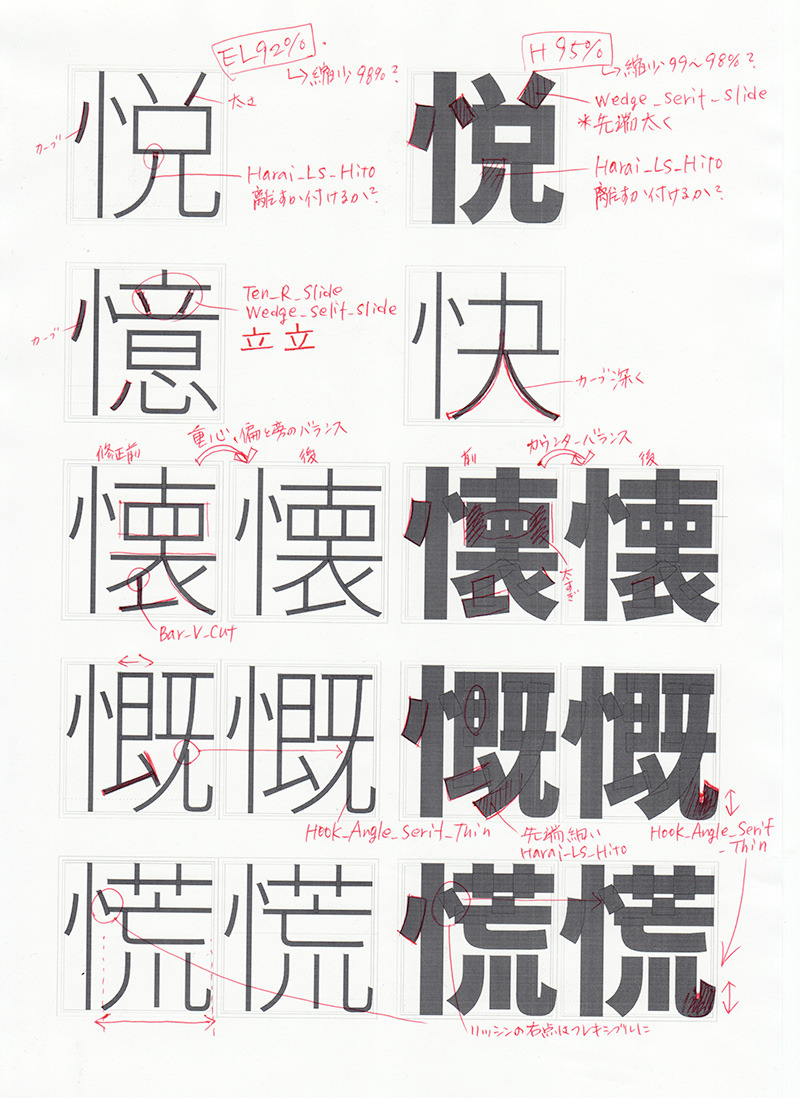 EL92%.
↳縮少98%?
H 95%
↳縮少99〜98%?
悦
カーブ
太さ
Harai_LS_Hito
離すか付けるか?
悦
Wedge_Serif_Slide
*先端太く
Harai_LS_Hito
離すか付けるか?
憶
カーブ
Ten_R_Slide
Wedge_Selif_slide
立 立
快
カーブ深く
重心、偏と旁のバランス
修正前
後
カウンターバランス
前
後
懐 懐
懐 懐
太すぎ
Bar_V_Cut
慨 慨
慨 慨
Hook_Angle_Serif_Thin
先端細い
Harai_LS_Hito
Hook_Angle_Serif
_Thin
慌 慌
慌 慌
リッシンの右点はフレキシブルに